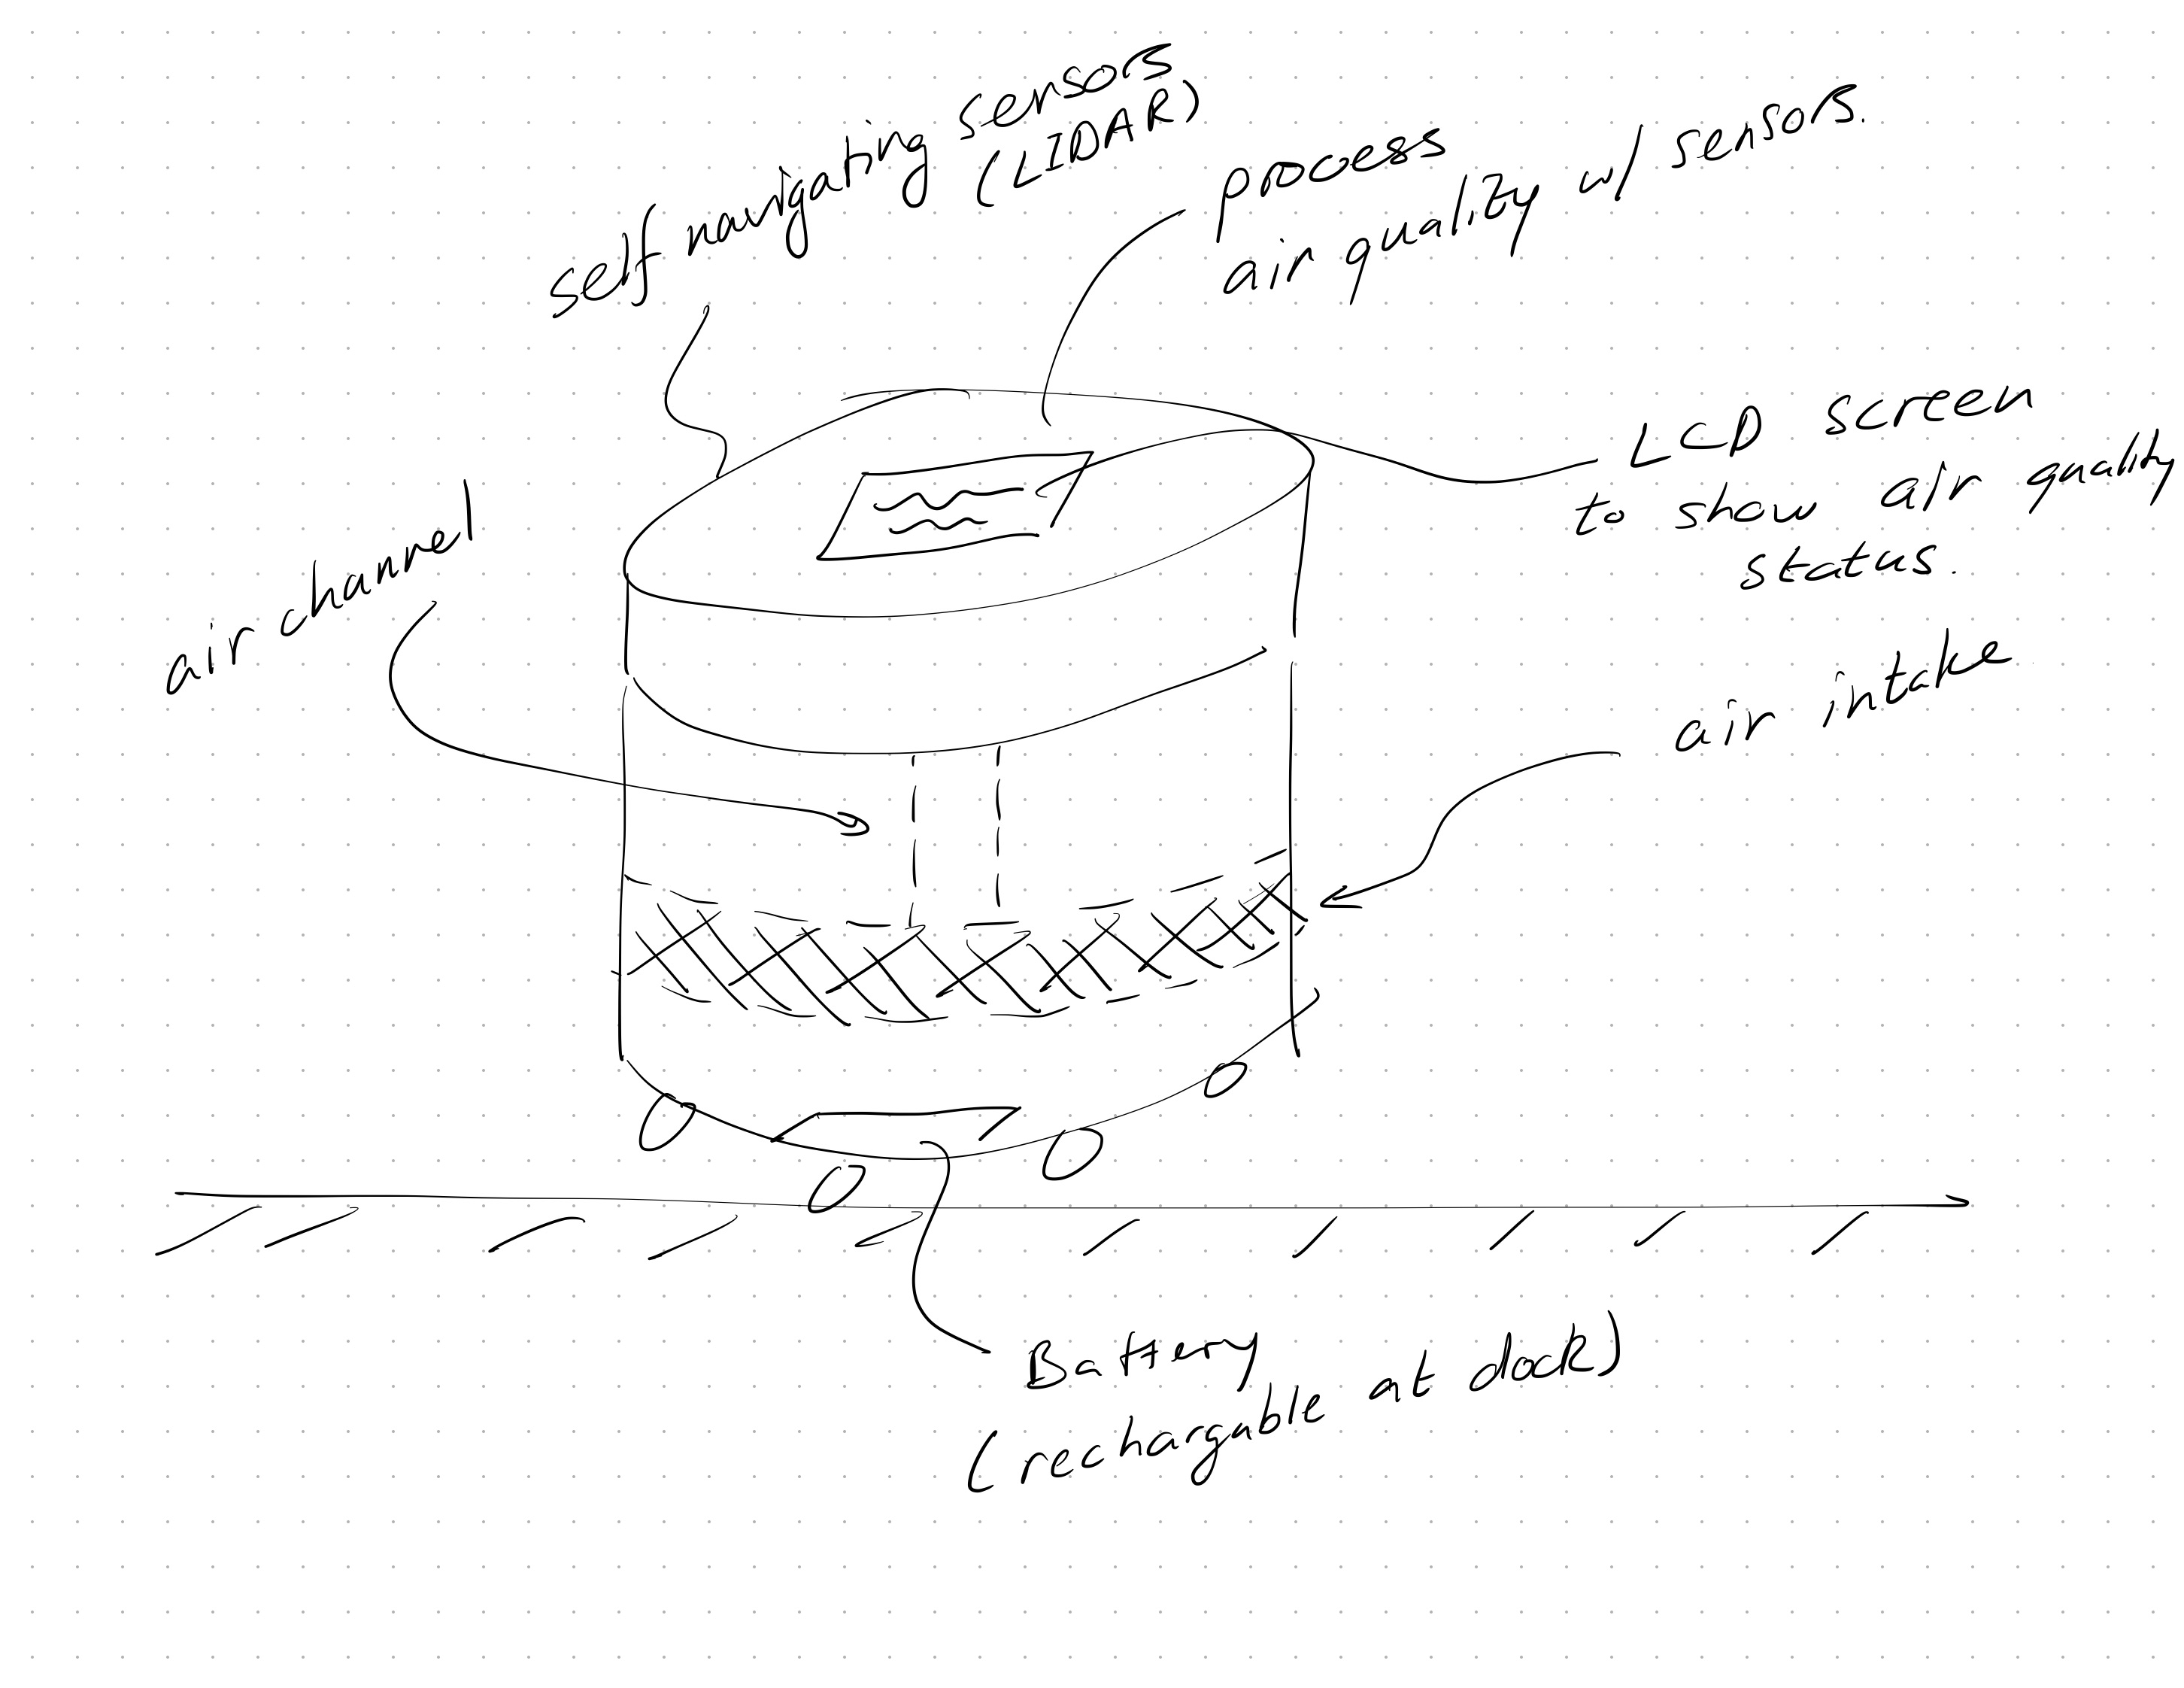 self navigating sensors
(LIDAR)
process
air quality w/ sensors.
LCD screen
to show air quality
status.
air channel
air intake
Battery
(rechargable at dock)